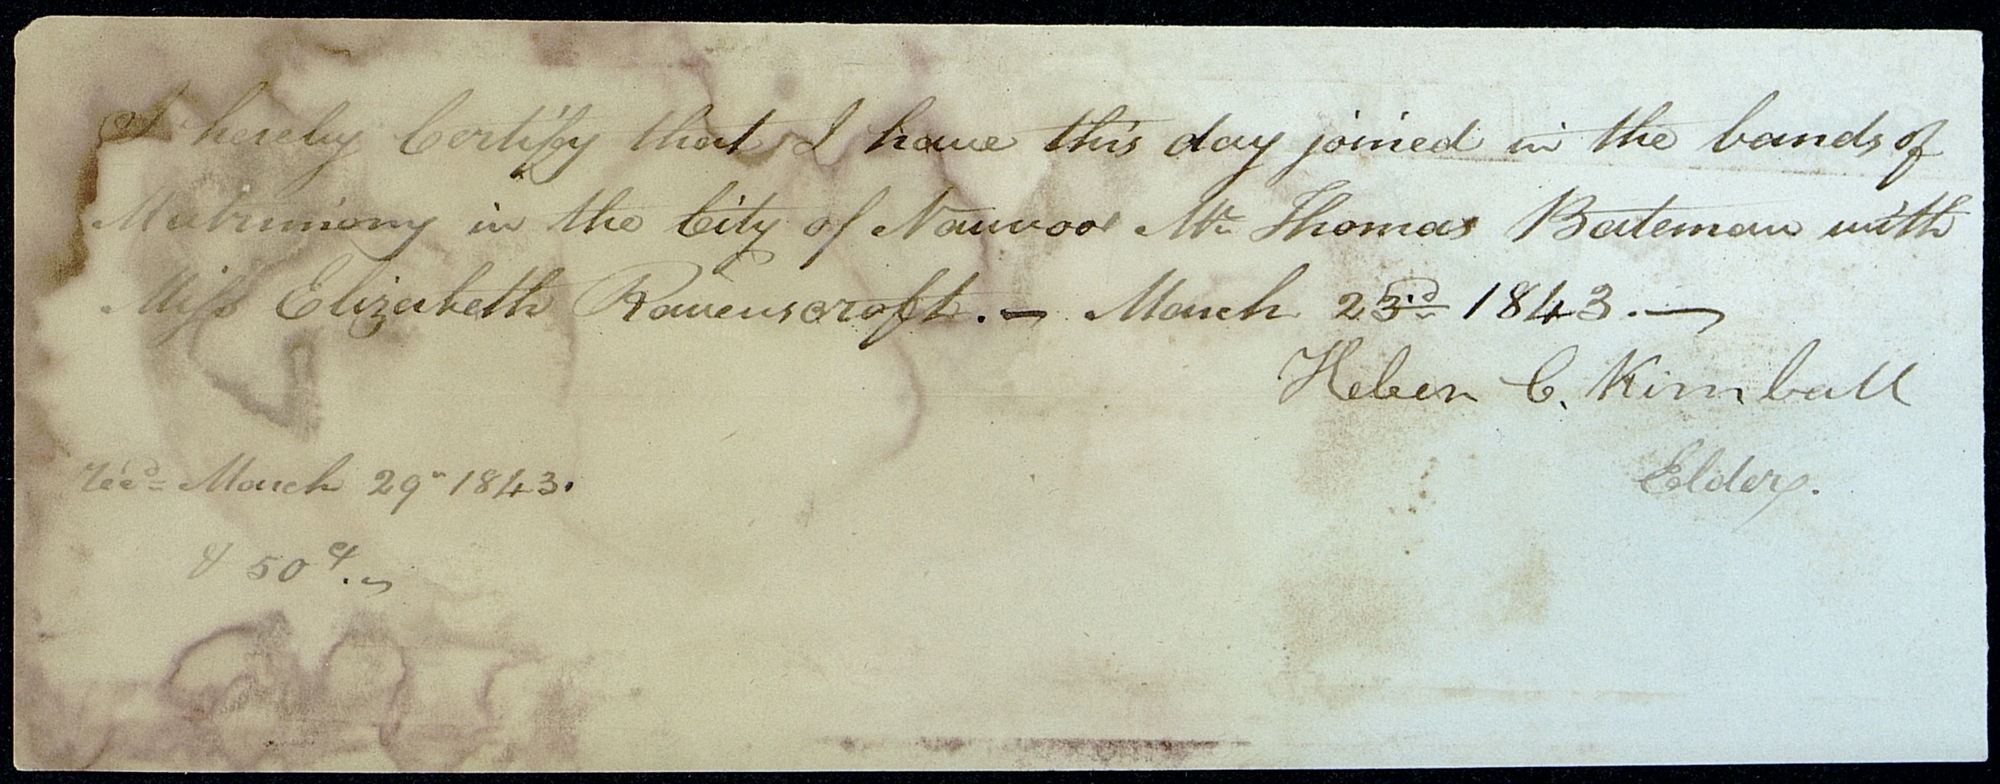 I hereby Certify that I have this day joined in the bands of
Matrimony in the City of Nauvoo Mr. Thomas Bateman with
Miss Elizabeth Ravenscroft. — March 23rd 1843. —
Heber C. Kimball
Elder.
recd March 29" 1843.
& 50 cts. ~